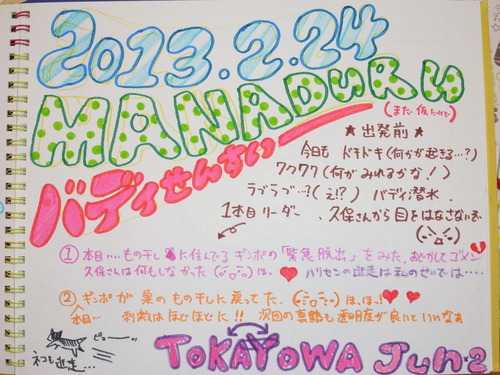 2013.2.24
MANADURU
(また仮だけど)
バディせんすい
★出発前★
今日も ドキドキ(何かが起きる…?)
ワクワク(何がみれるかな!)
ラブラブ…?(え!?) バディ潜水.
1本目リーダー 、久保さんから目をはなさないぞ
① 本日…もの干しに住んでるギンポの「緊急脱出」をみた。おどかしてゴメン
久保さんは何もしなかった ほ、 ハリセンの逃走は私のせいでは……
② ギンポが巣のもの干しに戻ってた。 ほ、ほっ!
本日… 刺激はほどほどに!! 次回の真鶴も透明度が良いといいなぁ
ネコも逃走… ピューーッ
TOKAYOWA Jun×2